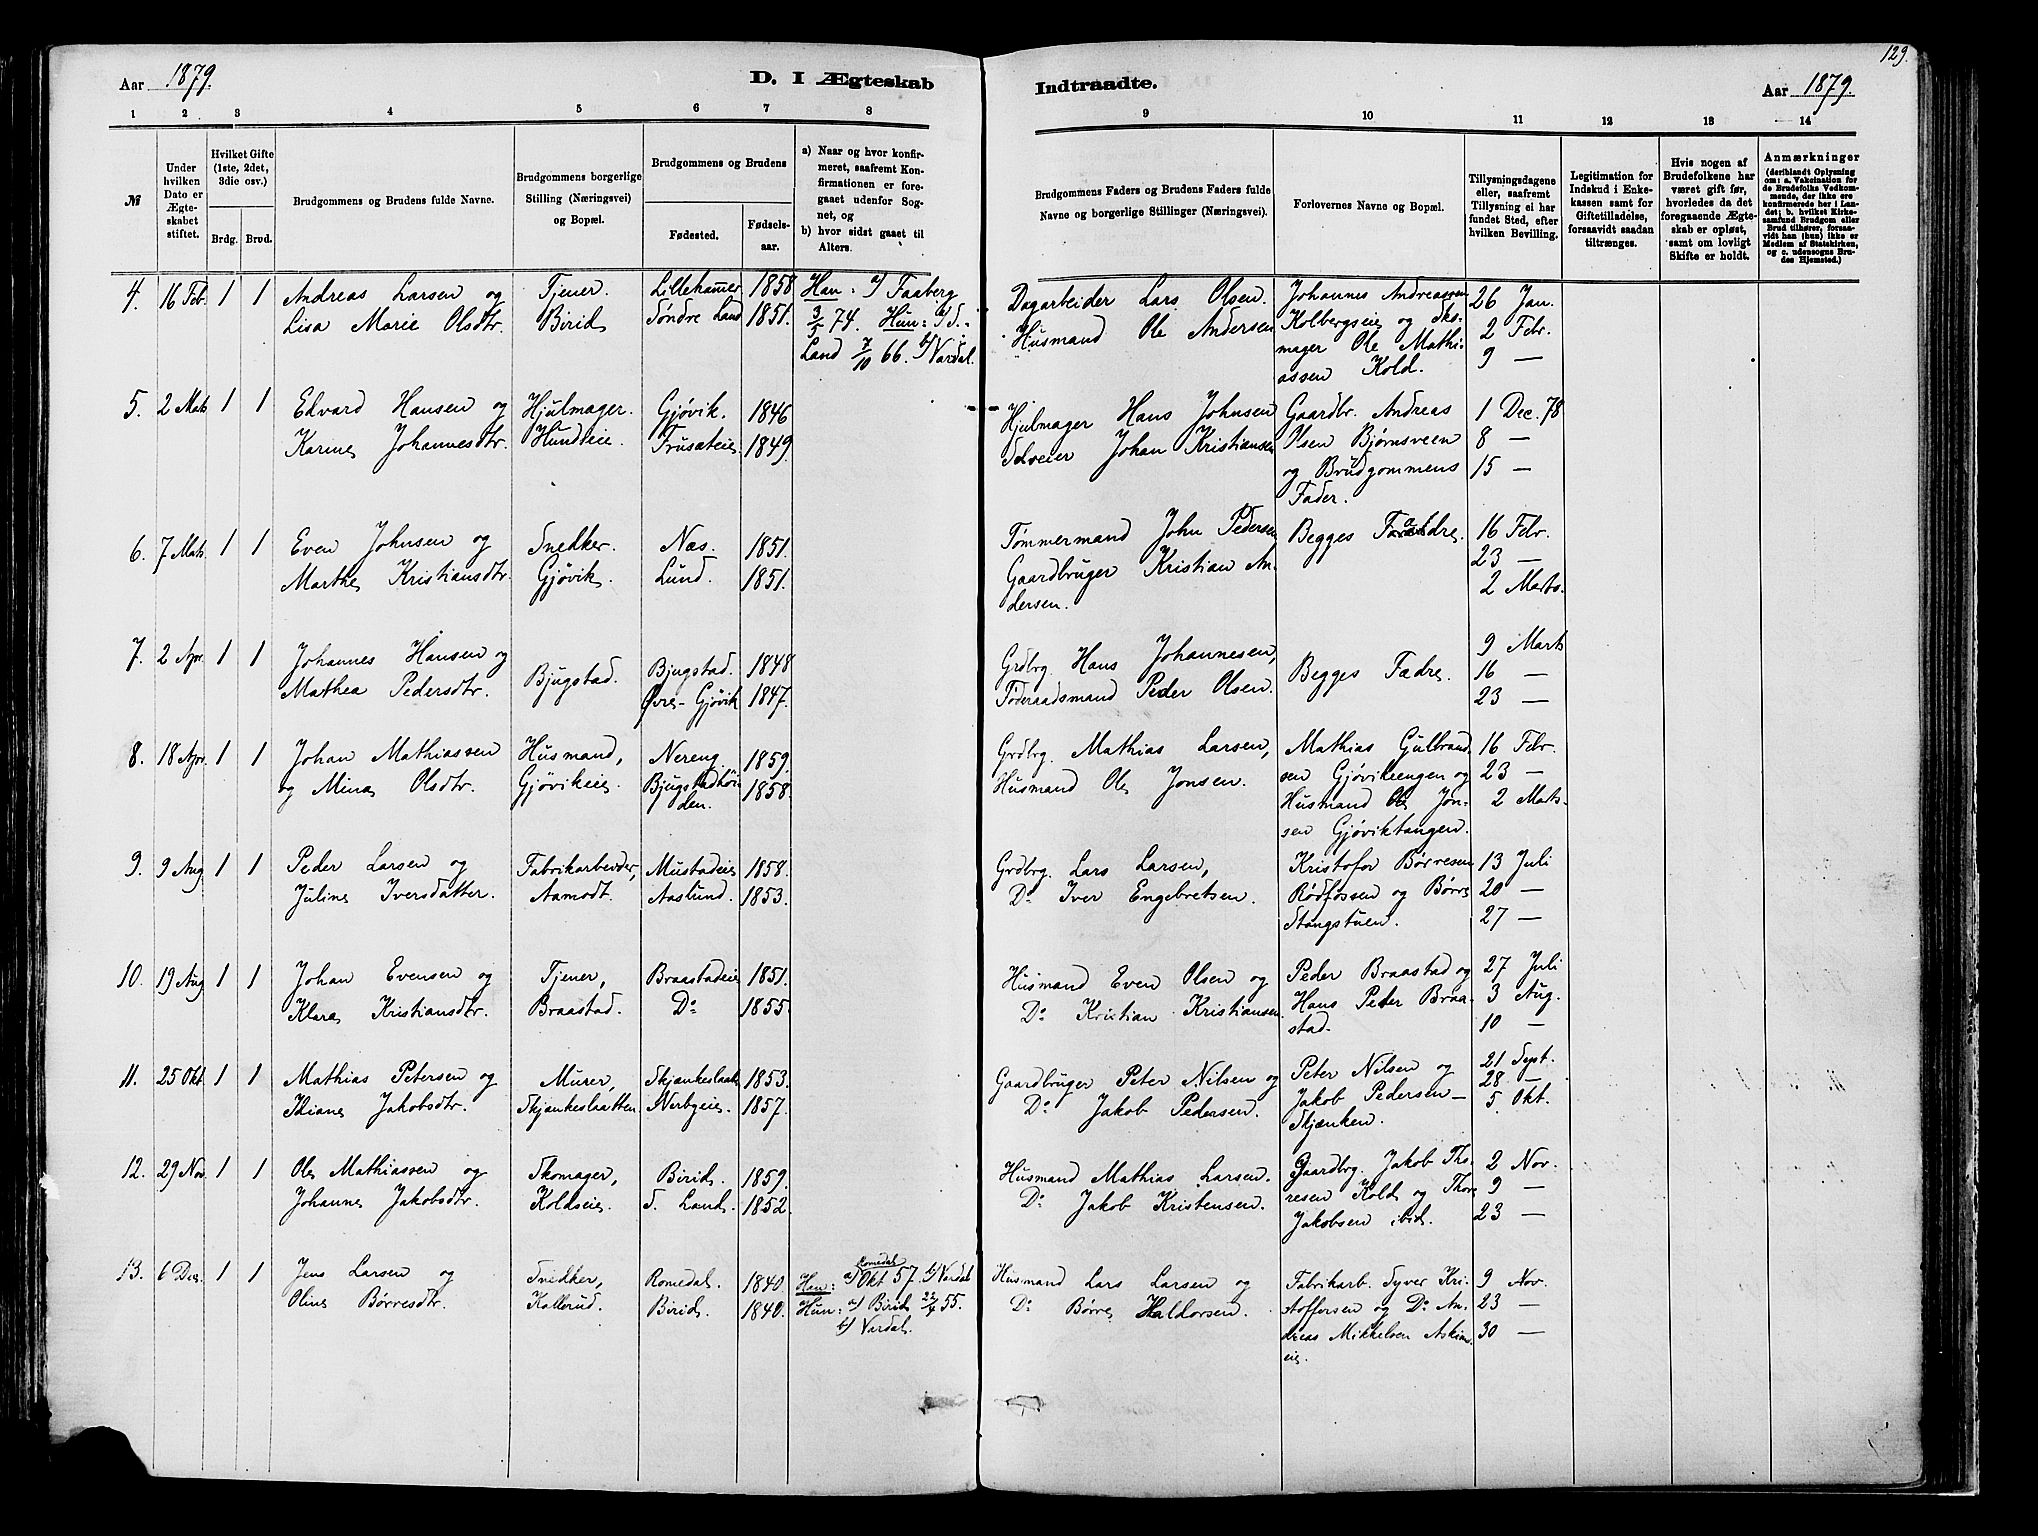 129.
Aar 1879.
D. I Ægteskab
Indtraadte.
Aar 1879.
1 2 3 4 5 6 7 8
9 10 11 12 13 14
№
Under hvilken Dato er Ægteskabet stiftet.
Hvilket Gifte (1ste, 2det, 3die osv.)
Brdg. Brud.
Brudgommens og Brudens fulde Navne.
Brudgommens borgerlige Stilling (Næringsvei) og Bopæl.
Brudgommens og Brudens
Fødested.
Fødselsaar.
a) Naar og hvor konfirmeret, saafremt Konfirmationen er foregaaet udenfor Sognet, og
b) hvor sidst gaaet til Alters.
Brudgommens Faders og Brudens Faders fulde Navne og borgerlige Stillinger (Næringsvei).
Forlovernes Navne og Bopæl.
Tillysningsdagene eller, saafremt Tillysning ei har fundet Sted, efter hvilken Bevilling.
Legitimation for Indskud i Enkekassen samt for Giftetilladelse, forsaavidt saadan tiltrænges.
Hvis nogen af Brudefolkene har været gift før, hvorledes da det foregaaende Ægteskab er opløst, samt om lovligt Skifte er holdt.
Anmærkninger (deriblandt Oplysning om: a. Vakcination for de Brudefolks Vedkommende, der ikke ere konfirmerede her i Landet; b. hvilket Kirkesamfund Brudgom eller Brud tilhører, forsaavidt han (hun) ikke er Medlem af Statskirken, og c. udensogns Brudes Hjemsted.)
4. 16 Feb. 1 1 Andreas Larsen og Tjener. Lillehamer 1858 Han: a) Faaberg
Lisa Marie Olsdtr. Birid Søndre Land 1851. 3/5 74. Hun: a) S.
Land 7/10 66. b) Vardal.
Dagarbeider Lars Olsen. Johannes Andreassen 26 Jan.
Husmand Ole Andersen Kolbergseie og Sko- 2 Febr.
mager Ole Mathi- 9 —
assen Kold.
5. 2 Mats 1 1 Edvard Hansen og Hjulmager. Gjøvik. 1846
Karine Johannesdtr. Hundseie. Trusateie 1849.
Hjulmager Hans Johnsen Gaardbr. Andreas 1 Dec. 78
Selveier Johan Kristiansen Olsen Bjørnsveen 8 —
og Brudgommens 15 —
Fader.
6. 7 Mats. 1 1 Even Johnsen og Snedker. Næs. 1851.
Marthe Kristiansdtr. Gjøvik. Lund. 1851.
Tømmermand John Pedersen Begges Fædre. 16 Febr.
Gaardbruger Kristian An- 23 —
dersen. 2 Marts.
7. 2 Apr. 1 1 Johannes Hansen og Bjugstad. Bjugstad. 1848
Mathea Pedersdtr. Øvre-Gjøvik 1847.
Grdbrg. Hans Johannesen, Begges Fædre. 9 Marts
Føderaadsmand Peder Olsen. 16 —
23 —
8. 18 Apr. 1 1 Johan Mathiassen Husmand, Nereng. 1859.
og Mina Olsdtr. Gjøvikeie. Bjugstadhøi- 1858.
den.
Grdbrg. Mathias Larsen, Mathias Gulbrand 16 Febr.
Husmand Ole Jonsen. sen Gjøvikeengen og 23 —
Husmand Ole Jon- 2 Mats.
sen Gjøviktangen.
9. 9 Aug 1 1 Peder Larsen og Fabrikarbeider, Mustadeie 1858.
Juline Iversdatter. Aamodt. Aaslund. 1853.
Grdbrg. Lars Larsen, Kristofor Børresen 13 Juli
Do Iver Engebretsen. Rødfossen og Børre 20 —
Stangstuen. 27 —
10. 19 Aug 1 1 Johan Evensen og Tjener, Braastadeie 1851.
Klara Kristiansdtr. Braastad. Do 1855.
Husmand Even Olsen og Peder Braastad og 27 Juli
Do Kristian Kristiansen. Hans Peter Braa- 3 Aug.
stad. 10 —
11. 25 Okt. 1 1 Mathias Petersen og Murer, Skjænkeslaatt. 1853.
Idiane Jakobsdtr. Skjænkeslaatten. Nerbyeie. 1857.
Gaardbruger Peter Nilsen og Peter Nilsen og 21 Sept.
Do Jakob Pedersen. Jakob Pedersen — 28 —
Skjænken. 5 Okt.
12. 29 Nov 1 1 Ole Mathiassen og Skomager, Birid. 1859.
Johanne Jakobsdtr. Koldseie. S. Land. 1852.
Husmand Mathias Larsen. Gaardbrg. Jakob Tho- 2 Nov.
Do Jakob Kristensen. resen Kold og Thore 9 —
Jakobsen ibid. 23 —
13. 6 Dec. 1 1 Jens Larsen og Snedker, Romedal. 1840. Han: a) Romedal Okt 57. b) Vardal
Oline Børresdtr. Kallerud. Birid. 1840. Hun: a) Birid 22/4 55.
b) Vardal.
Husmand Lars Larsen og Fabrikarb. Syver Kri- 9 Nov.
Do Børre Haldorsen. stoffersen og Do An- 23 —
dreas Mikkelsen Askim- 30 —
eie.